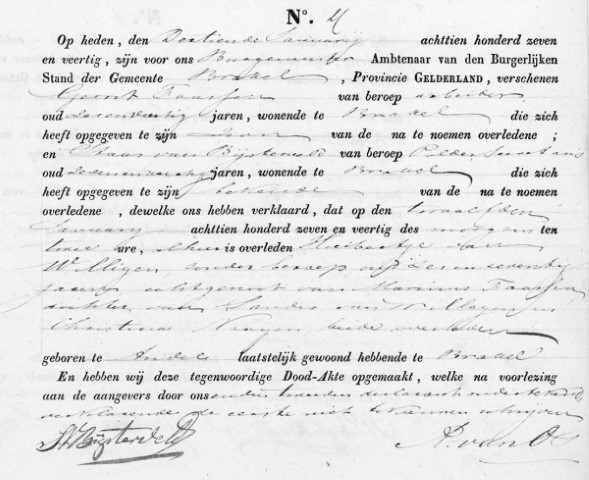 N°. 4
Op heden, den Dertiende January achttien honderd zeven
en veertig, zijn voor ons Burgemeester Ambtenaar van den Burgerlijken
Stand der Gemeente Brakel, Provincie GELDERLAND, verschenen
Gerrit van beroep arbeider
oud jaren, wonende te Brakel die zich
heeft opgegeven te zijn Zoon van de na te noemen overledene;
en van Bijsterveld van beroep Polder Secretaris
oud jaren, wonende te Brakel die zich
heeft opgegeven te zijn bekende van de na te noemen
overledene, dewelke ons hebben verklaard, dat op den twaalfden
January achttien honderd zeven en veertig des morgens ten
twee ure, alhier is overleden Huibertje van
Willigen, zonder beroep oud zeven en zeventig
jaren, echtgenoot van Marinus
dochter van Sander van Willigen en
Christina beide overleden
geboren te Andel laatstelijk gewoond hebbende te Brakel
En hebben wij deze tegenwoordige Dood-Akte opgemaakt, welke na voorlezing
aan de aangevers door ons en den tweeden declarant onderteekend,
verklarende de eerste niet te kunnen schrijven